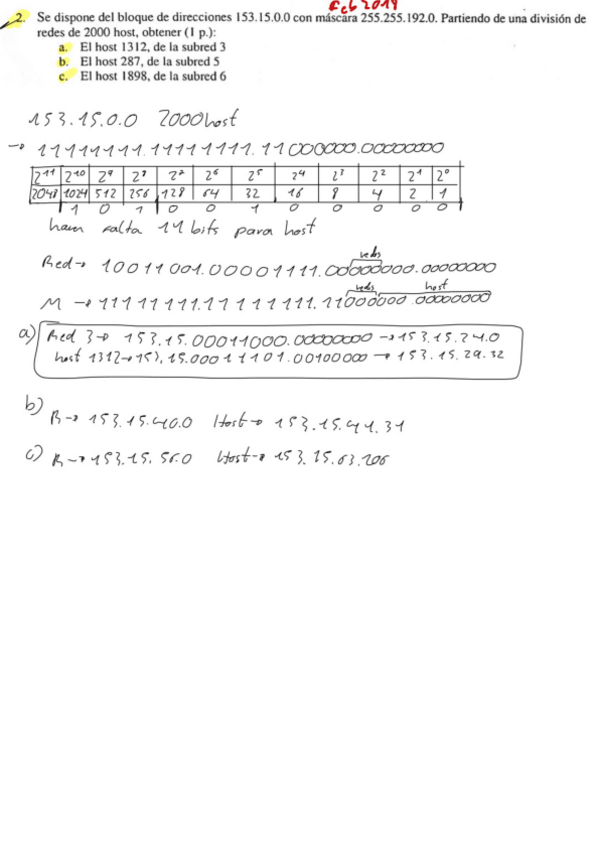 Feb 2019
2. Se dispone del bloque de direcciones 153.15.0.0 con máscara 255.255.192.0. Partiendo de una división de
redes de 2000 host, obtener (1 p.):
a. El host 1312, de la subred 3
b. El host 287, de la subred 5
c. El host 1898, de la subred 6
153.15.0.0 2000 host
→ 11111111.11111111.11000000.00000000
2^11 2^10 2^9 2^8 2^7 2^6 2^5 2^4 2^3 2^2 2^1 2^0
2048 1024 512 256 128 64 32 16 8 4 2 1
1 0 1 0 0 1 0 0 0 0 0
hacen falta 11 bits para host
redes
Red → 10011001.00001111.00000000.00000000
redes host
M → 11111111.11111111.11000000.00000000
a) Red 3 → 153.15.00011000.00000000 → 153.15.24.0
host 1312 → 153.15.00011101.00100000 → 153.15.29.32
b) R → 153.15.40.0 Host → 153.15.41.31
c) R → 153.15.56.0 Host → 153.15.63.206